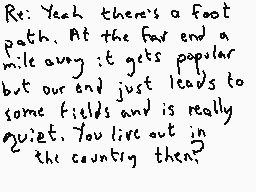 Re: Yeah there's a foot
path. At the far end a
mile away it gets popular
but our end just leads to
some fields and is really
quiet. You live out in
the country then?